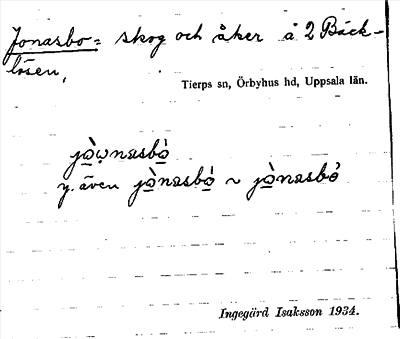 Jonasbo = skog och åker å 2 Bäck-
lösen,
Tierps sn, Örbyhus hd, Uppsala län.
jò̲w̨nasbò̲
y. även jò̲nasbò̲ ~ jò̲nasbo̓
Ingegärd Isaksson 1934.